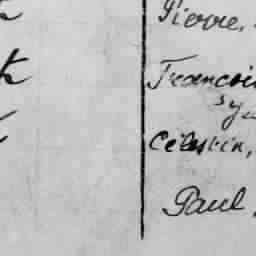 Pierre,
Francois
sy
Célestin,
Paul,